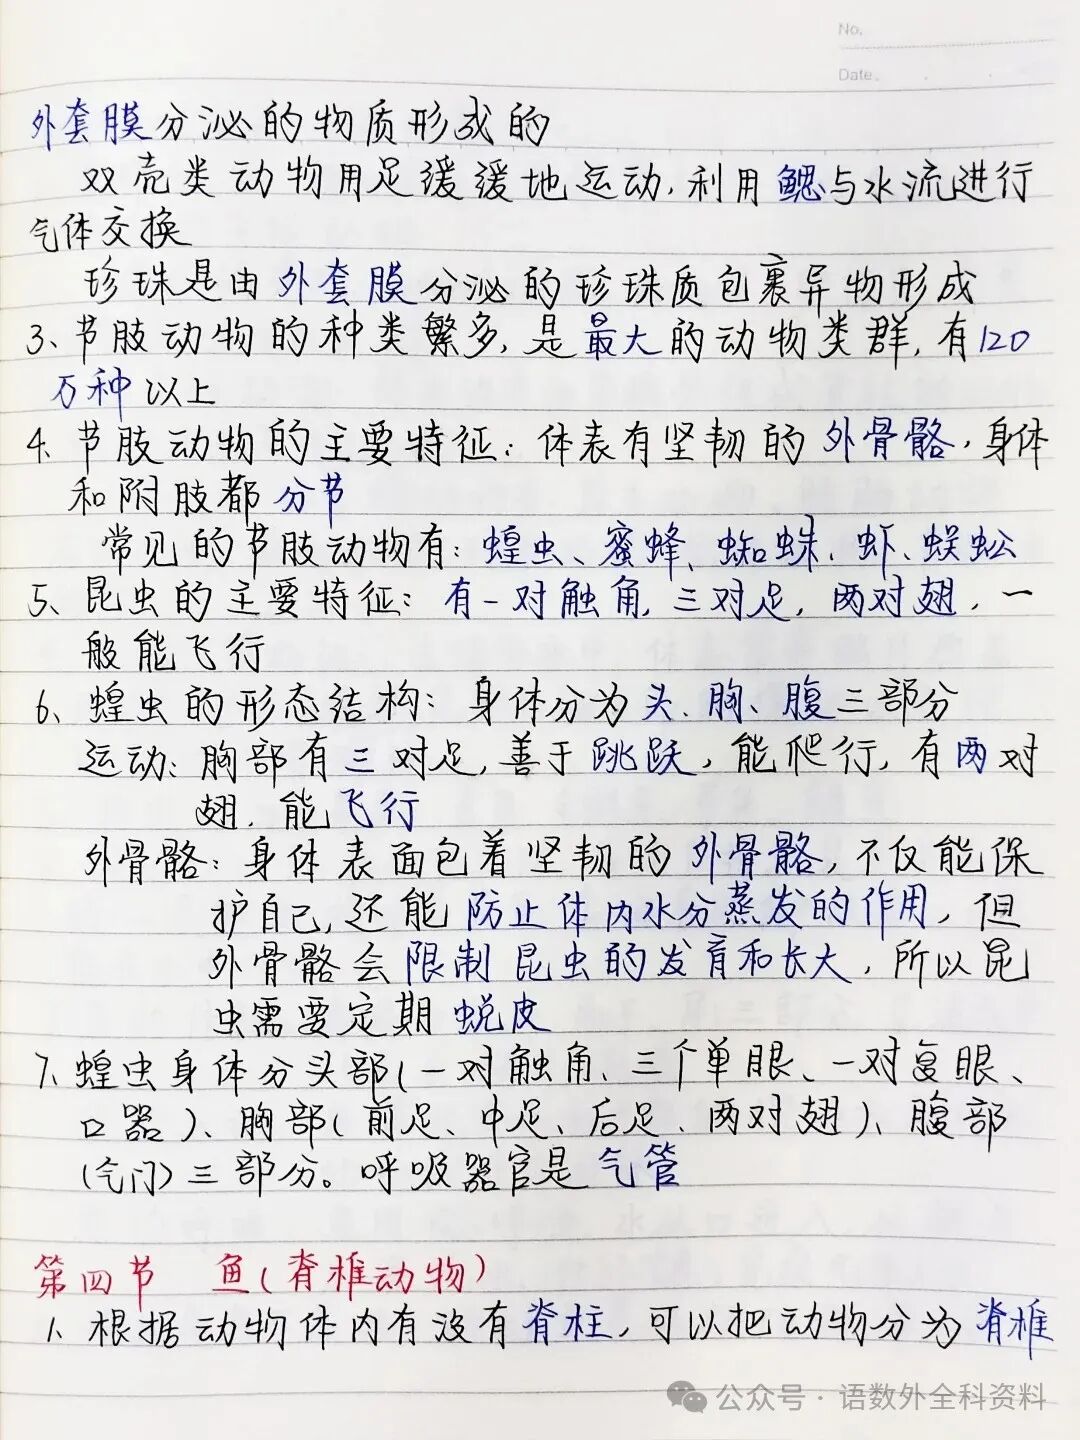 No.
Date.
外套膜分泌的物质形成的
双壳类动物用足缓缓地运动,利用鳃与水流进行
气体交换
珍珠是由外套膜分泌的珍珠质包裹异物形成
3、节肢动物的种类繁多,是最大的动物类群,有120
万种以上
4、节肢动物的主要特征:体表有坚韧的外骨骼,身体
和附肢都分节
常见的节肢动物有:蝗虫、蜜蜂、蜘蛛、虾、蜈蚣
5、昆虫的主要特征:有一对触角,三对足,两对翅,一
般能飞行
6、蝗虫的形态结构:身体分为头、胸、腹三部分
运动:胸部有三对足,善于跳跃,能爬行,有两对
翅,能飞行
外骨骼:身体表面包着坚韧的外骨骼,不仅能保
护自己,还能防止体内水分蒸发的作用,但
外骨骼会限制昆虫的发育和长大,所以昆
虫需要定期蜕皮
7、蝗虫身体分头部(一对触角、三个单眼、一对复眼、
口器)、胸部(前足、中足、后足、两对翅)、腹部
(气门)三部分。呼吸器官是气管
第四节 鱼(脊椎动物)
1、根据动物体内有没有脊柱,可以把动物分为脊椎
公众号·语数外全科资料